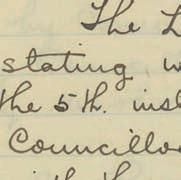 The
stating
the 5th. inst
Councillo